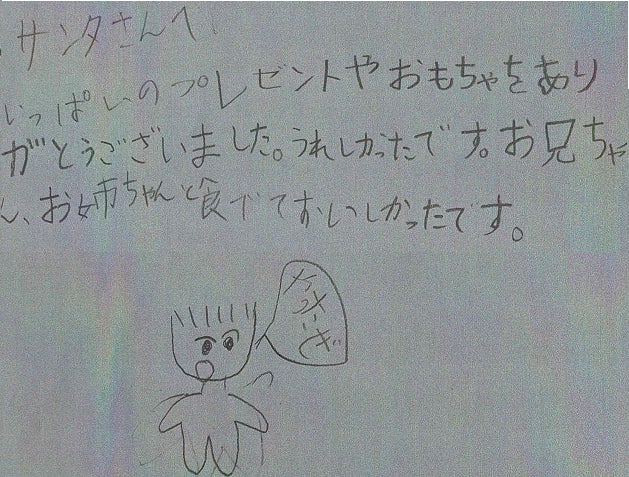 サンタさんへ
いっぱいのプレゼントやおもちゃをあり
がとうございました。うれしかったです。お兄ちゃ
ん、お姉ちゃんと食べておいしかったです。